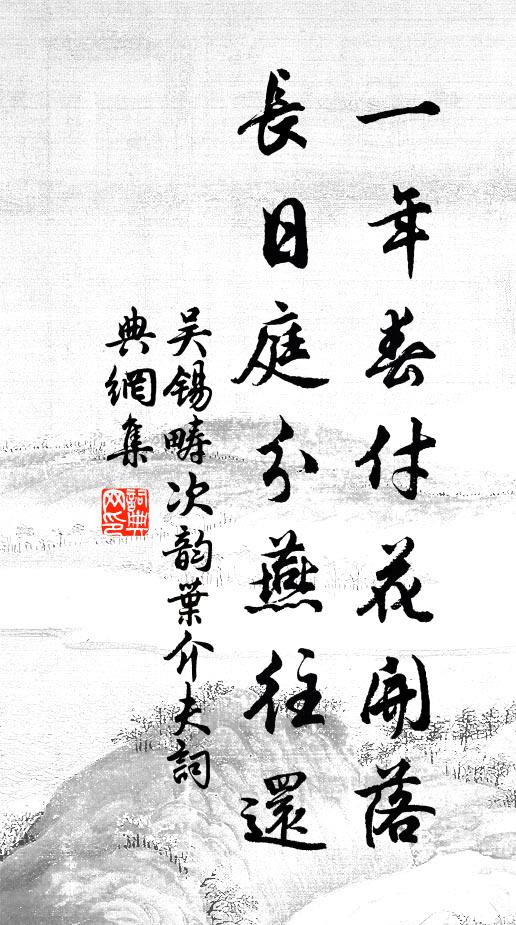 一年春付花開落
長日庭分燕往還
吳錫疇次韵葉介夫詞
典網集
詞典
网印